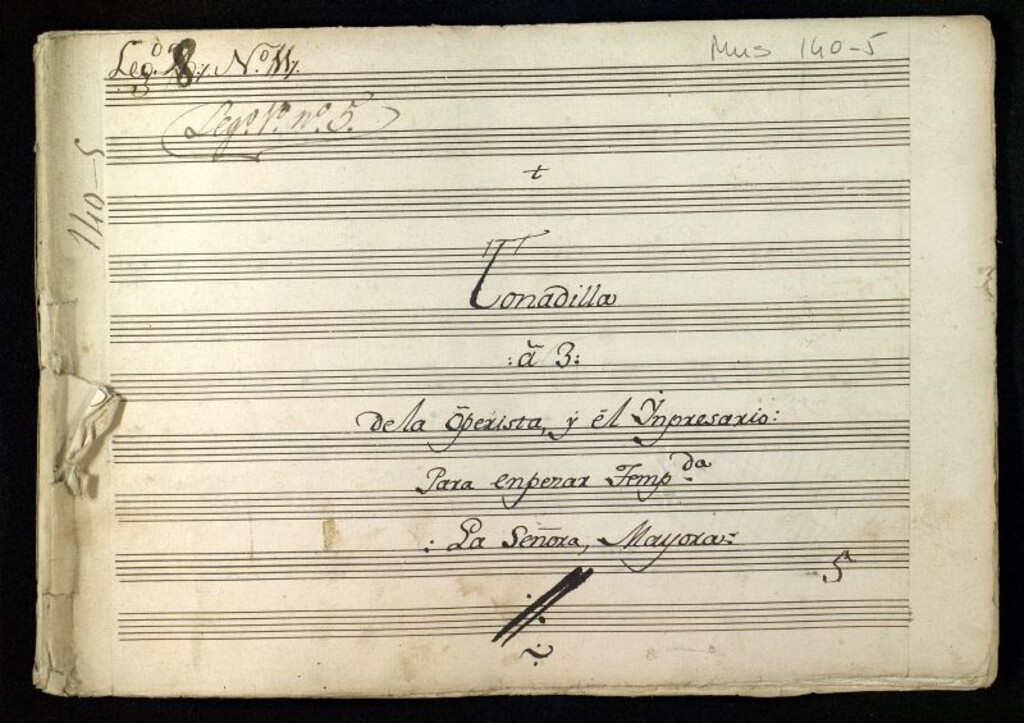 Leg.º 8 y N.º 11 y.
Mus 140-5
Leg.º 1.º n.º 5.
140-5
t
Tonadilla
: ã 3:
De la õperista, y ël Ynpresario:
Para enpezar Temp.da
: La Señora, Mayora:
5ª